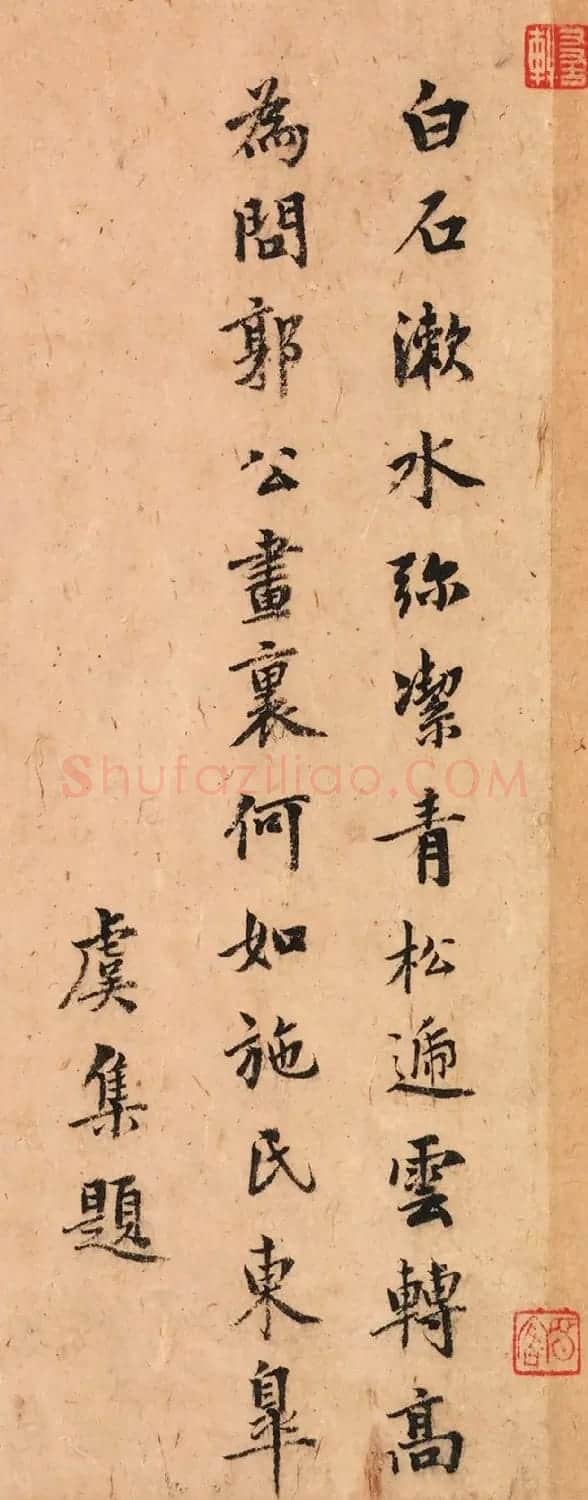 白石漱水弥潔青松遞雲轉高
為問郭公畫裏何如施氏東皐
虞集題
Shufaziliao.COM